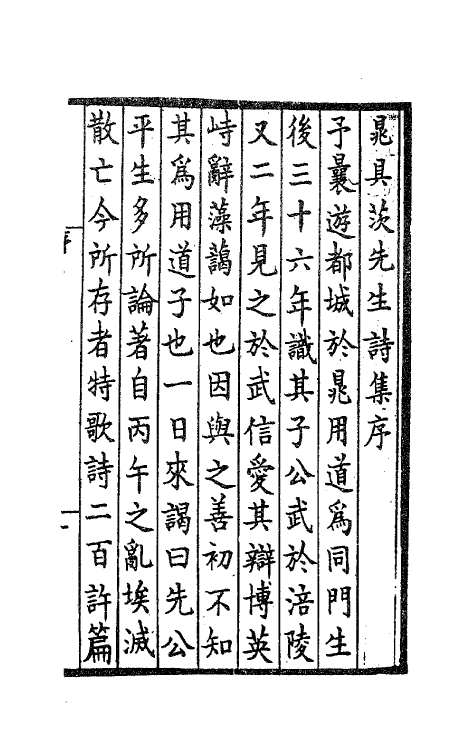 晁具茨先生詩集序
予曩遊都城於晁用道爲同門生
後三十六年識其子公武於涪陵
又二年見之於武信愛其辯博英
峙辭藻藹如也因與之善初不知
其爲用道子也一日來謁曰先公
平生多所論著自丙午之亂埃滅
散亡今所存者特歌詩二百許篇